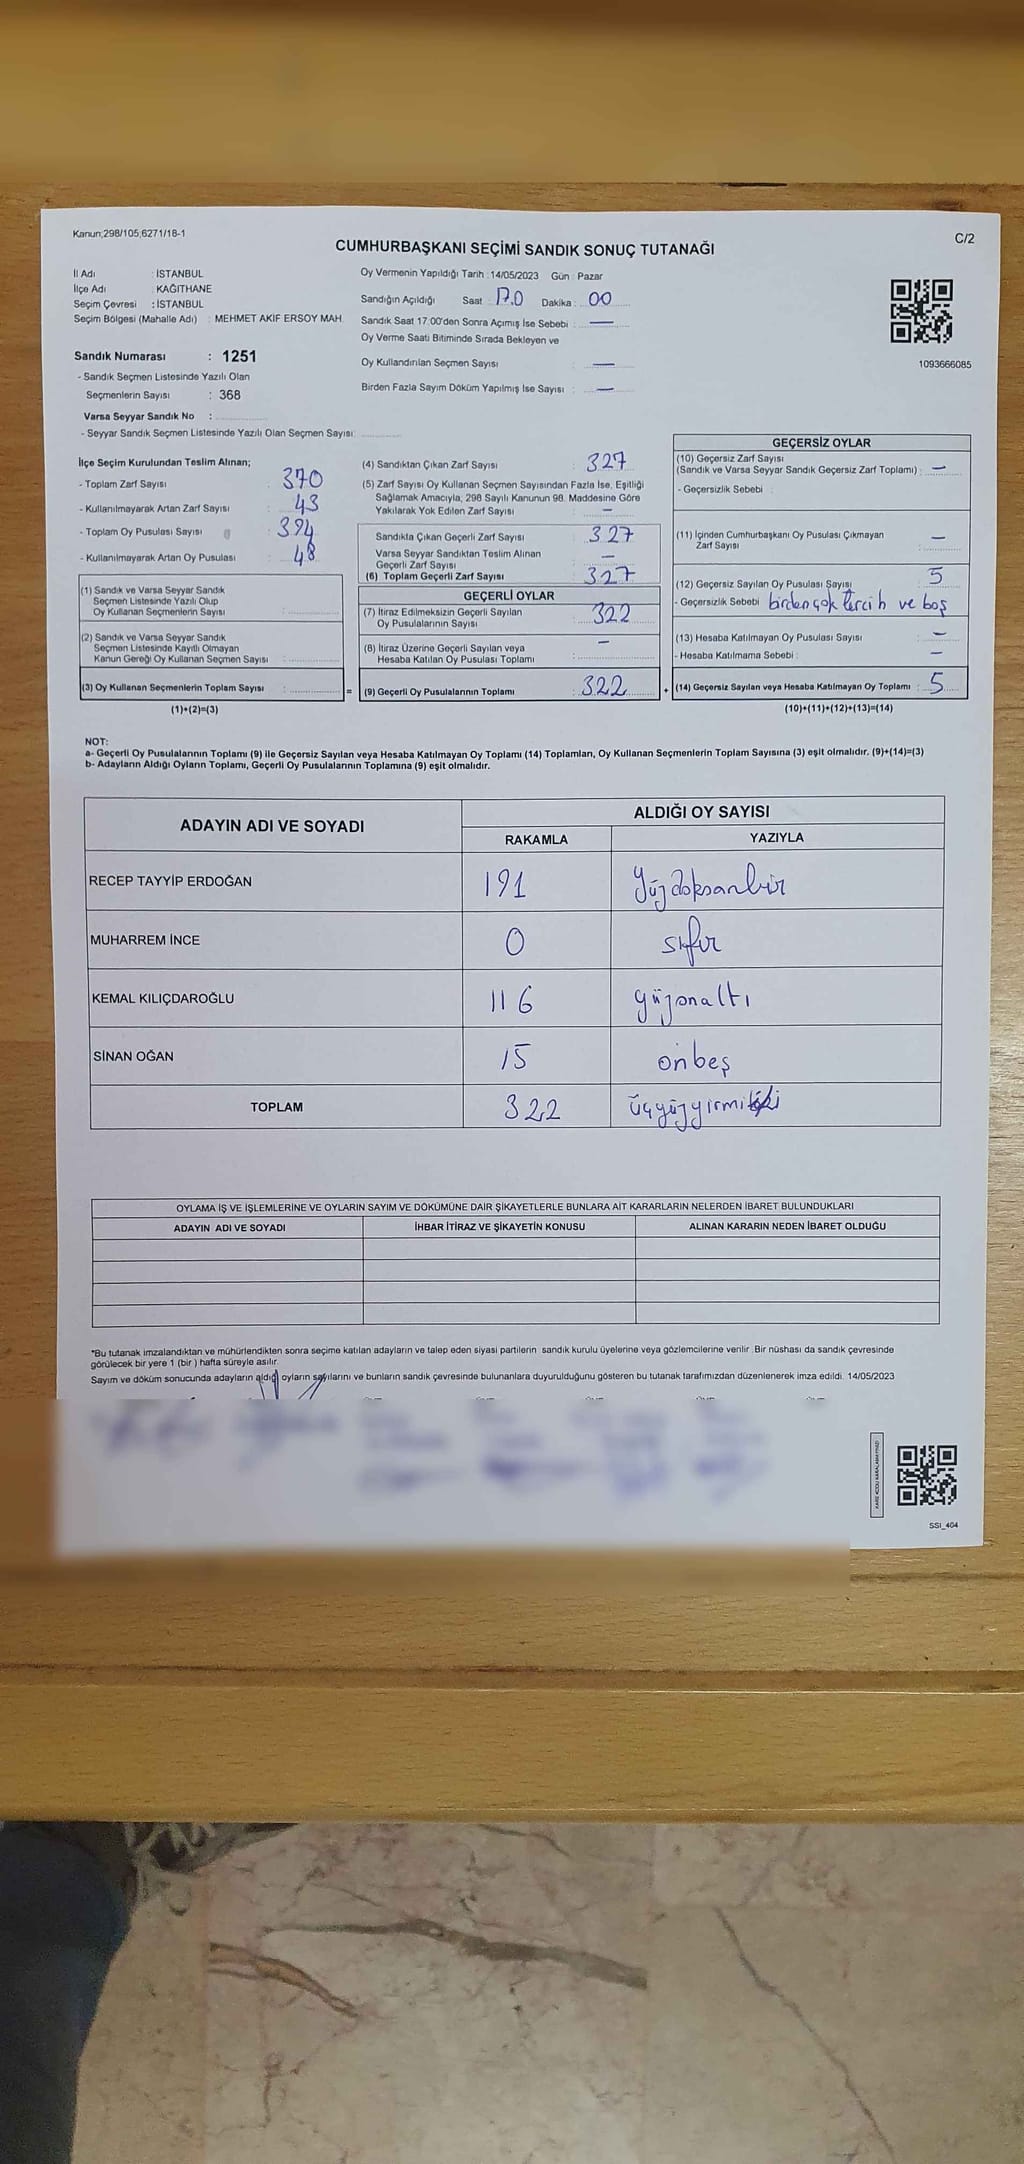 Kanun;298/105,6271/18-1
C/2
CUMHURBAŞKANI SEÇİMİ SANDIK SONUÇ TUTANAĞI
İl Adı : İSTANBUL
İlçe Adı : KAĞITHANE
Seçim Çevresi : İSTANBUL
Seçim Bölgesi (Mahalle Adı) : MEHMET AKİF ERSOY MAH.
Sandık Numarası : 1251
- Sandık Seçmen Listesinde Yazılı Olan
Seçmenlerin Sayısı : 368
Varsa Seyyar Sandık No :
- Seyyar Sandık Seçmen Listesinde Yazılı Olan Seçmen Sayısı:
Oy Vermenin Yapıldığı Tarih :14/05/2023 Gün : Pazar
Sandığın Açıldığı Saat : 17.0 Dakika : 00
Sandık Saat 17:00'den Sonra Açımış İse Sebebi : —
Oy Verme Saati Bitiminde Sırada Bekleyen ve
Oy Kullandırılan Seçmen Sayısı : —
Birden Fazla Sayım Döküm Yapılmış İse Sayısı : —
1093666085
İlçe Seçim Kurulundan Teslim Alınan;
- Toplam Zarf Sayısı : 370
- Kullanılmayarak Artan Zarf Sayısı : 43
- Toplam Oy Pusulası Sayısı : 394
- Kullanılmayarak Artan Oy Pusulası : 48
(1) Sandık ve Varsa Seyyar Sandık
Seçmen Listesinde Yazılı Olup
Oy Kullanan Seçmenlerin Sayısı :
(2) Sandık ve Varsa Seyyar Sandık
Seçmen Listesinde Kayıtlı Olmayan
Kanun Gereği Oy Kullanan Seçmen Sayısı :
(3) Oy Kullanan Seçmenlerin Toplam Sayısı : =
(1)+(2)=(3)
(4) Sandıktan Çıkan Zarf Sayısı : 327
(5) Zarf Sayısı Oy Kullanan Seçmen Sayısından Fazla İse, Eşitliği
Sağlamak Amacıyla, 298 Sayılı Kanunun 98. Maddesine Göre
Yakılarak Yok Edilen Zarf Sayısı : —
Sandıkla Çıkan Geçerli Zarf Sayısı : 327
Varsa Seyyar Sandıktan Teslim Alınan
Geçerli Zarf Sayısı : —
(6) Toplam Geçerli Zarf Sayısı : 327
GEÇERLİ OYLAR
(7) İtiraz Edilmeksizin Geçerli Sayılan
Oy Pusulalarının Sayısı : 322
(8) İtiraz Üzerine Geçerli Sayılan veya
Hesaba Katılan Oy Pusulası Toplamı : —
(9) Geçerli Oy Pusulalarının Toplamı : 322 +
GEÇERSİZ OYLAR
(10) Geçersiz Zarf Sayısı
(Sandık ve Varsa Seyyar Sandık Geçersiz Zarf Toplamı) : —
- Geçersizlik Sebebi :
(11) İçinden Cumhurbaşkanı Oy Pusulası Çıkmayan
Zarf Sayısı : —
(12) Geçersiz Sayılan Oy Pusulası Sayısı : 5
- Geçersizlik Sebebi birden çok tercih ve boş
(13) Hesaba Katılmayan Oy Pusulası Sayısı : —
- Hesaba Katılmama Sebebi : —
(14) Geçersiz Sayılan veya Hesaba Katılmayan Oy Toplamı : 5
(10)+(11)+(12)+(13)=(14)
NOT:
a- Geçerli Oy Pusulalarının Toplamı (9) ile Geçersiz Sayılan veya Hesaba Katılmayan Oy Toplamı (14) Toplamları, Oy Kullanan Seçmenlerin Toplam Sayısına (3) eşit olmalıdır. (9)+(14)=(3)
b- Adayların Aldığı Oyların Toplamı, Geçerli Oy Pusulalarının Toplamına (9) eşit olmalıdır.
ADAYIN ADI VE SOYADI
ALDIĞI OY SAYISI
RAKAMLA YAZIYLA
RECEP TAYYİP ERDOĞAN 191 Yüzdoksanbir
MUHARREM İNCE 0 sıfır
KEMAL KILIÇDAROĞLU 116 yüzonaltı
SİNAN OĞAN 15 onbeş
TOPLAM 322 üçyüzyirmiiki
OYLAMA İŞ VE İŞLEMLERİNE VE OYLARIN SAYIM VE DÖKÜMÜNE DAİR ŞİKAYETLERLE BUNLARA AİT KARARLARIN NELERDEN İBARET BULUNDUKLARI
ADAYIN ADI VE SOYADI İHBAR İTİRAZ VE ŞİKAYETİN KONUSU ALINAN KARARIN NEDEN İBARET OLDUĞU
*Bu tutanak imzalandıktan ve mühürlendikten sonra seçime katılan adayların ve talep eden siyasi partilerin sandık kurulu üyelerine veya gözlemcilerine verilir. Bir nüshası da sandık çevresinde
görülecek bir yere 1 (bir ) hafta süreyle asılır.
Sayım ve döküm sonucunda adayların aldığı oyların sayılarını ve bunların sandık çevresinde bulunanlara duyurulduğunu gösteren bu tutanak tarafımızdan düzenlenerek imza edildi. 14/05/2023
SSI_404